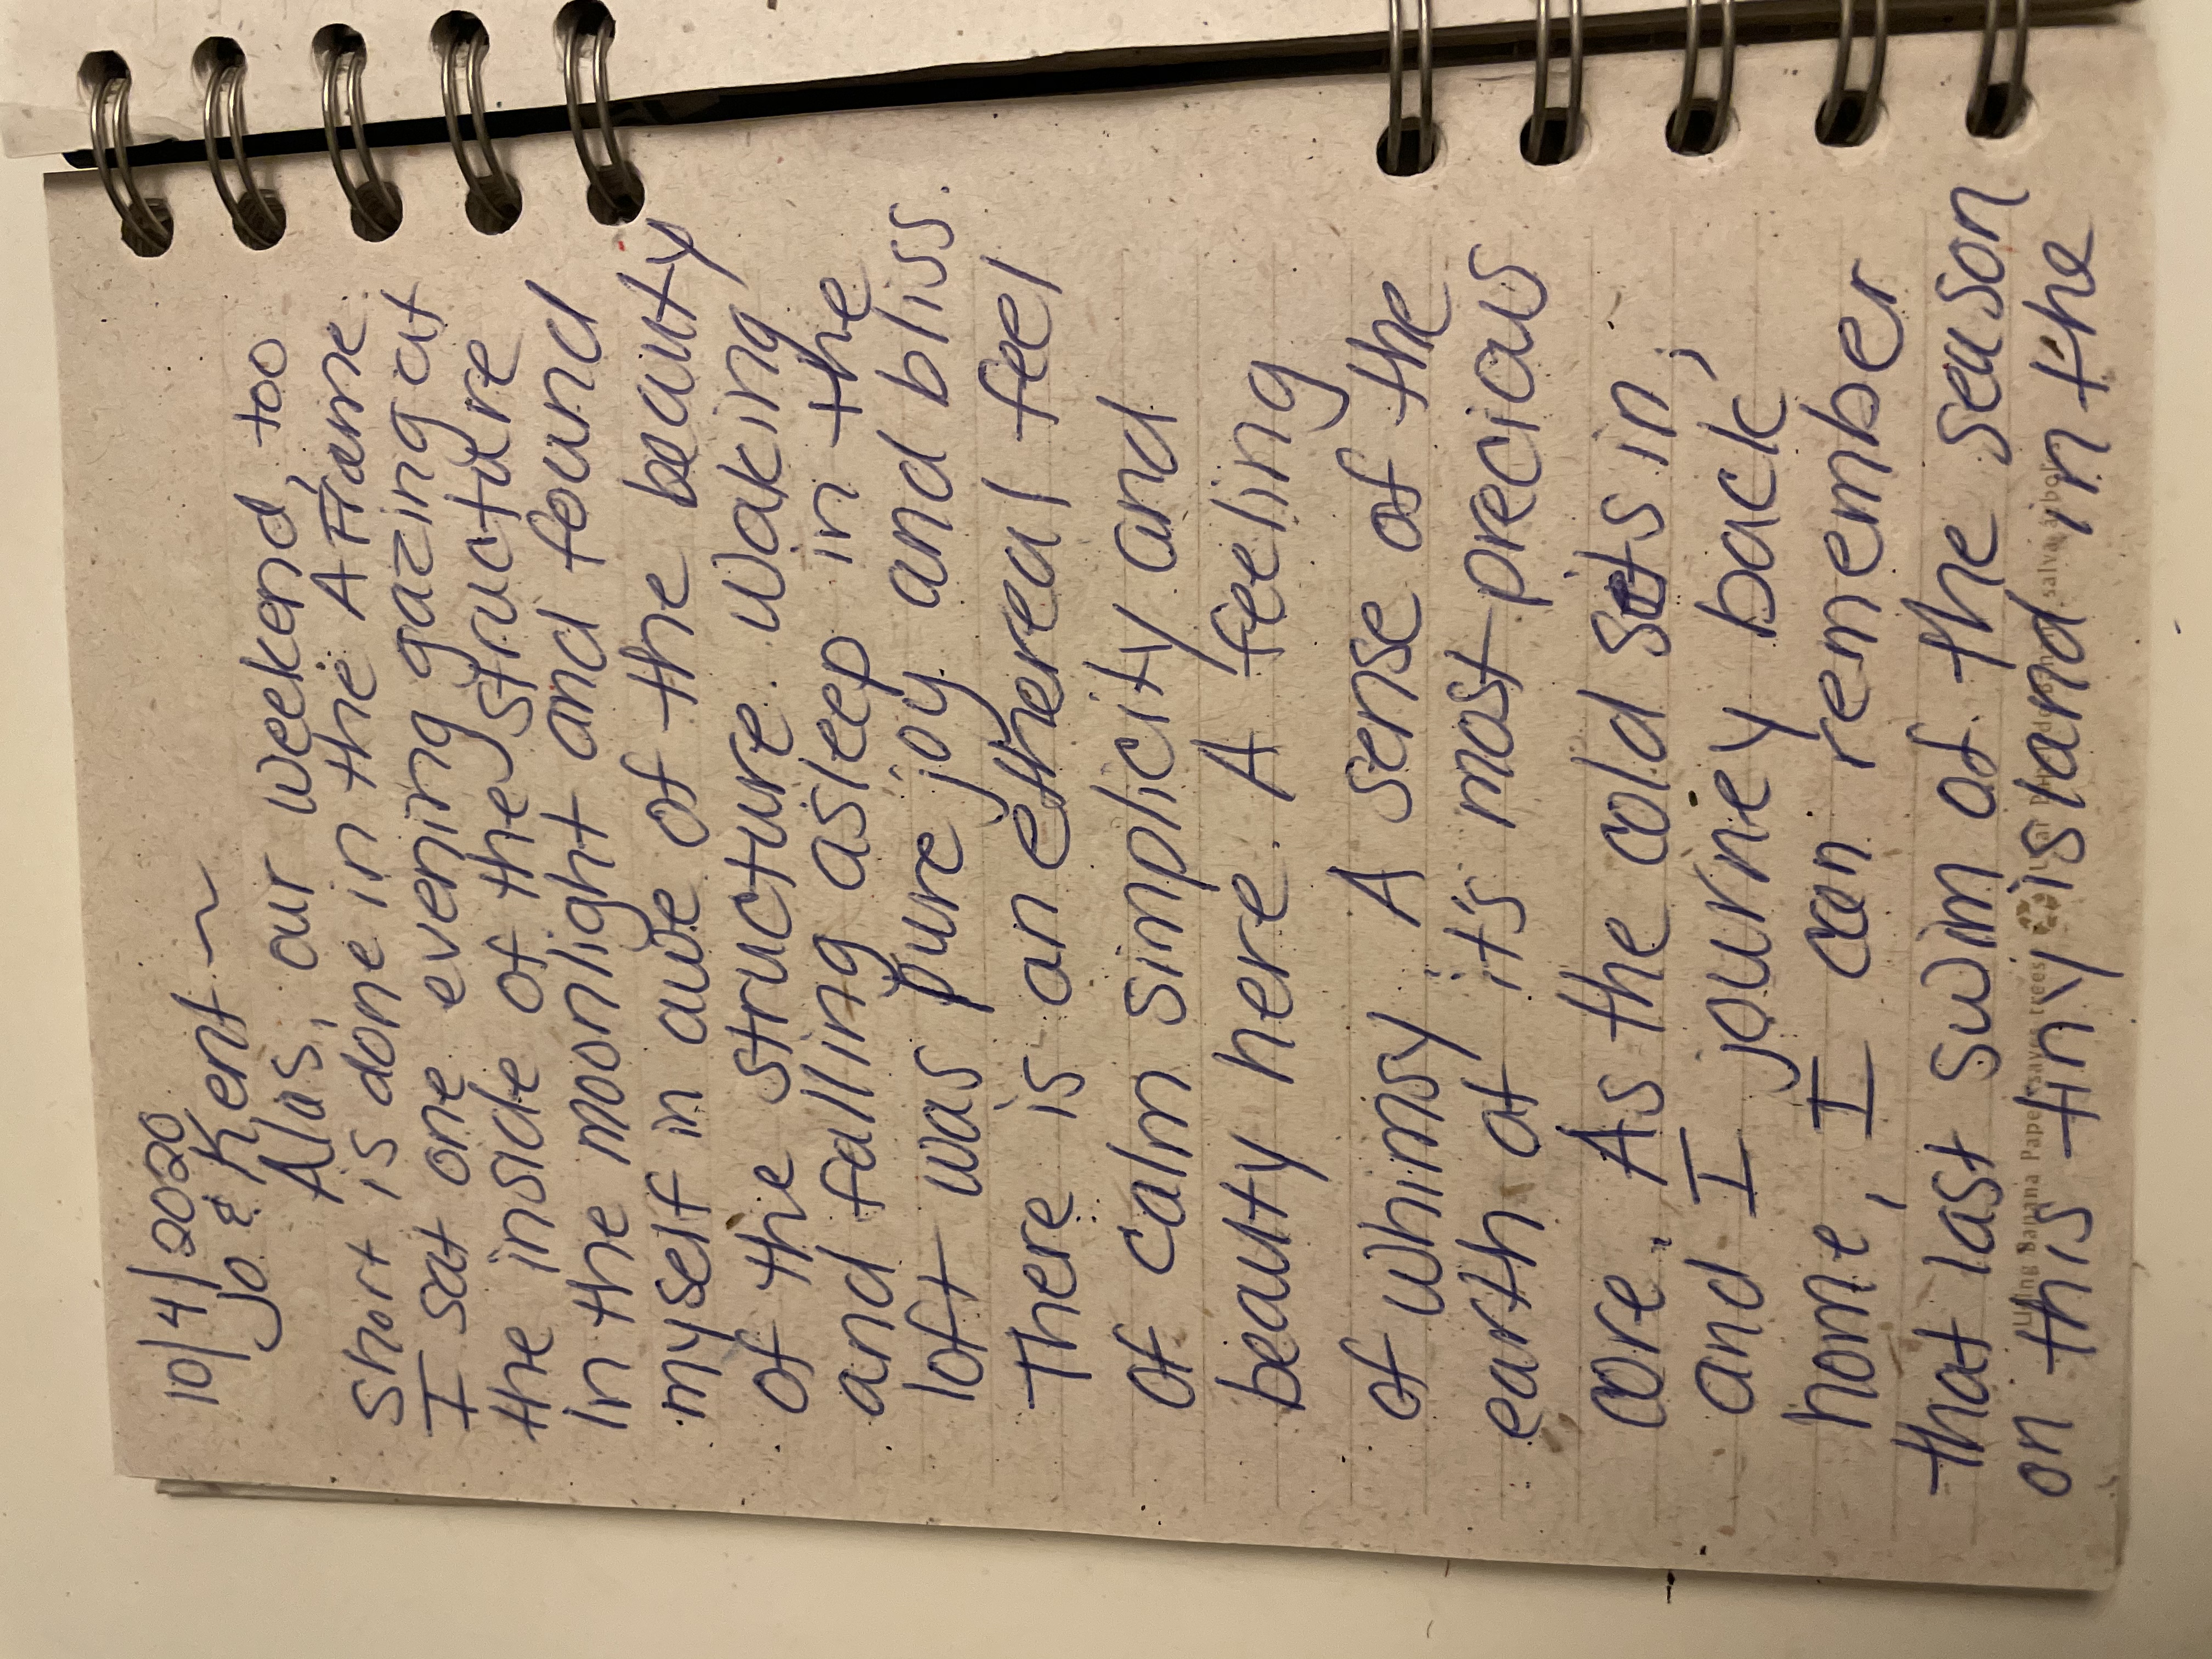 10/4/2020
Jo & Kent ~
Alas, our weekend, too
short is done in the A Frame.
I sat one evening gazing at
the inside of the structure
in the moonlight and found
myself in awe of the beauty
of the structure. Waking
and falling asleep in the
loft was pure joy and bliss.
There is an ethereal feel
of calm simplicity and
beauty here. A feeling
of whimsy. A sense of the
earth at it's most precious
core. As the cold sets in,
and I journey back
home, I can remember
that last swim of the season
on this tiny island in the
Using Banana Paper saves trees Usar Papel de banano salva árboles